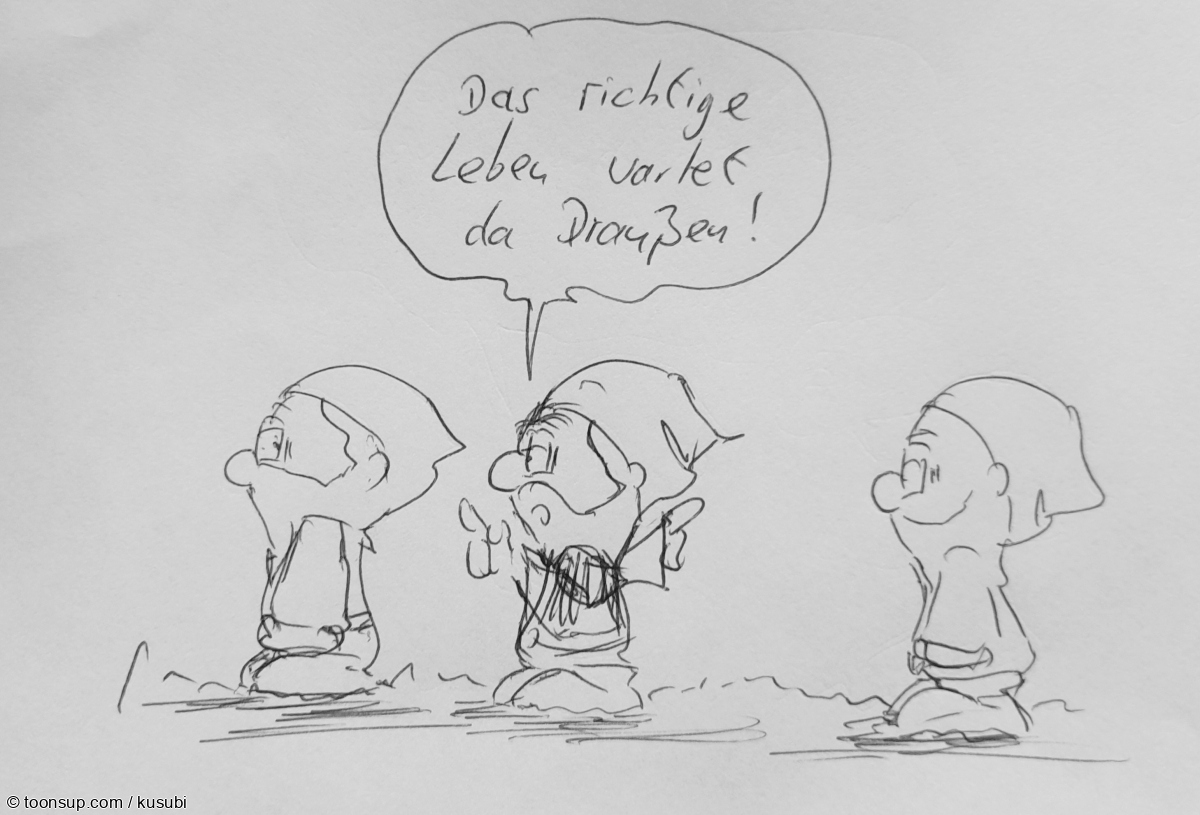 Das richtige
Leben wartet
da Draußen!
© toonsup.com / kusubi